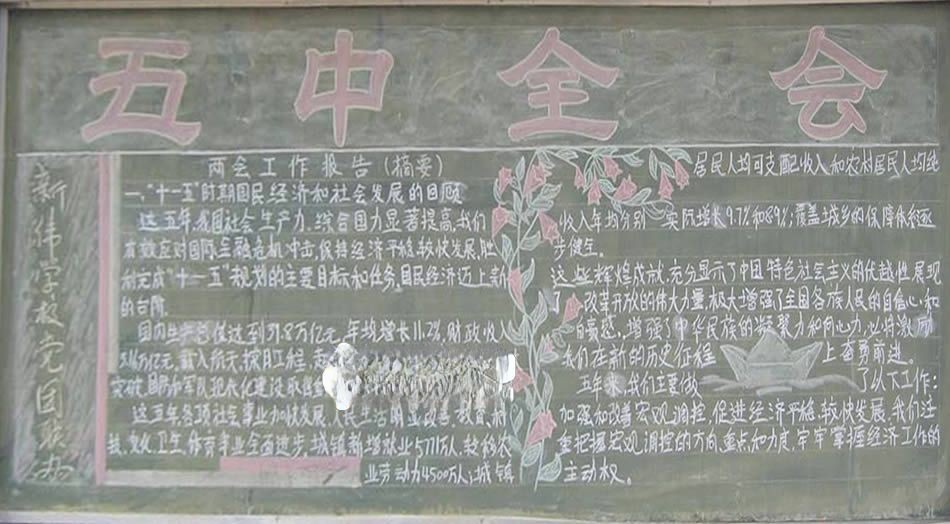 五中全会
新伟学校党团联办
两会工作报告（摘要）
一、“十一五”时期国民经济和社会发展的回顾
这五年，我国社会生产力、综合国力显著提高，我们
有效应对国际金融危机冲击，保持经济平稳较快发展，胜
利完成“十一五”规划的主要目标和任务，国民经济迈上新
的台阶。
国内生产总值达到39.8万亿元，年均增长11.2%，财政收入
万亿元。载人航天、探月工程、
突破，国防和军队现代化建设取得
这五年各项社会事业加快发展，人民生活明显改善。教育、科
技、文化、卫生、体育事业全面进步。城镇新增就业5771万人，转移农
业劳动力4500万人；城镇
居民人均可支配收入和农村居民人均纯
收入年均分别 实际增长9.7%和8.9%；覆盖城乡的保障体系逐
步健全。
这些辉煌成就，充分显示了中国特色社会主义的优越性，展现
了 改革开放的伟大力量，极大增强了全国各族人民的自信心和
自豪感，增强了中华民族的凝聚力和向心力，必将激励
我们在新的历史征程 上奋勇前进。
五年来，我们主要做 了以下工作：
加强和改善宏观调控，促进经济平稳较快发展。我们注
重把握宏观调控的方向、重点和力度，牢牢掌握经济工作的
主动权。